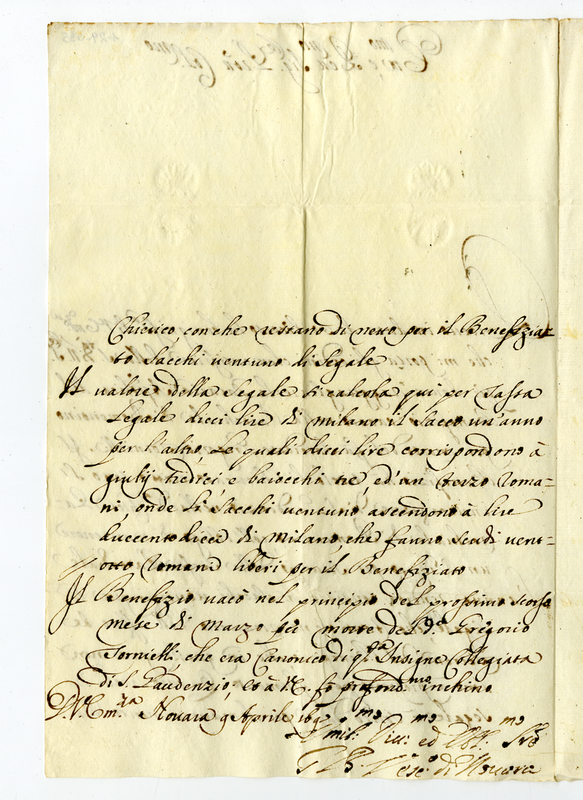 Chierico, con che restano di netto per il Benefizia-
to sacchi ventuno di segale
Il valore della segale si calcola qui per tassa
legale dieci lire di milano il sacco un'anno
per l'altro, le quali dieci lire corrispondono à
giulij tredici e baiocchi trè, ed'un terzo roma-
ni, onde li sacchi ventuno ascendono à lire
duccentodieci di milano che fanno scudi vent-
otto romani liberi per il Benefiziato
Il Benefizio vacò nel principio del prossimo scorso
mese di marzo per morte del Gregorio
Tornielli, che era Canonico di q.sta Insigne Collegiata
di S. Gaudenzio, ed à V.E. fò profond.mo inchino
D. V. Em.za Novara 9 Aprile
Umil.mo Div.mo ed Obl.mo
G B Vesc.o di Novara